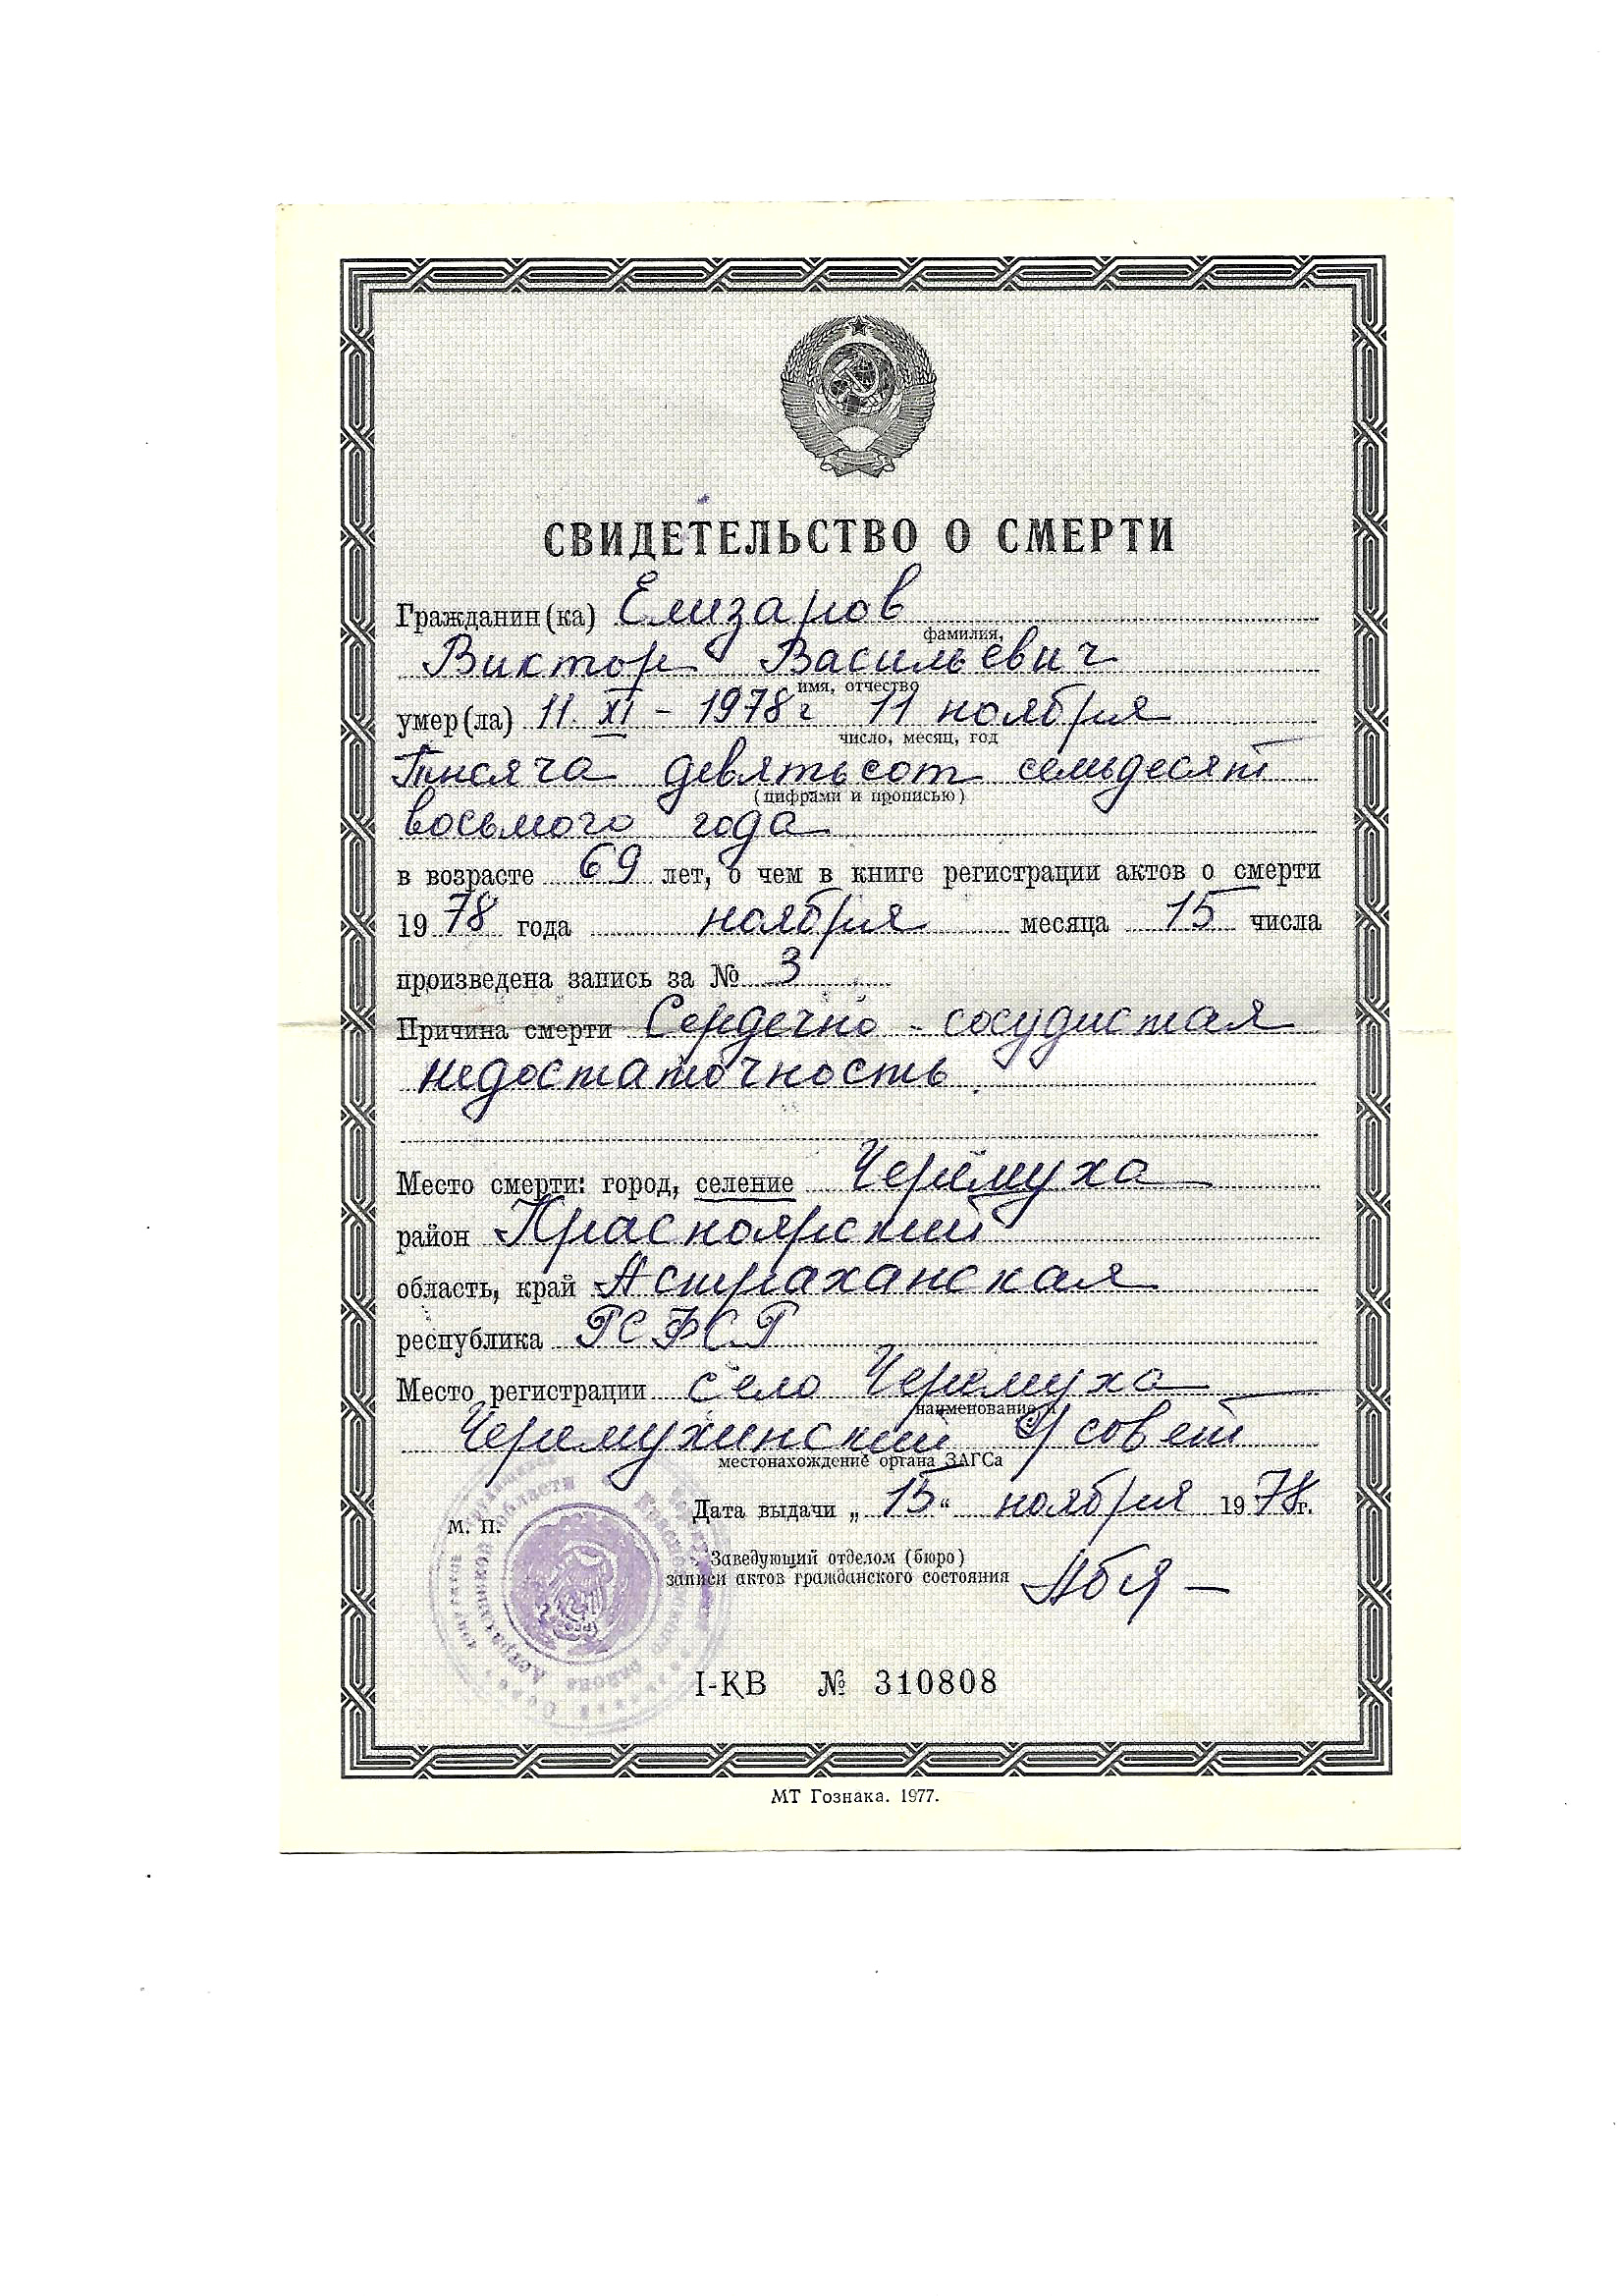 СВИДЕТЕЛЬСТВО О СМЕРТИ
Гражданин(ка) Елизаров
фамилия,
Виктор Васильевич
имя, отчество
умер(ла) 11. XI - 1978 г 11 ноября
число, месяц, год
Тысяча девятьсот семьдесят
(цифрами и прописью)
восьмого года
в возрасте 69 лет, о чем в книге регистрации актов о смерти
1978 года ноября месяца 15 числа
произведена запись за № 3
Причина смерти Сердечно - сосудистая
недостаточность.
Место смерти: город, селение Черёмуха
район Красноярский
область, край Астраханская
республика РСФСР
Место регистрации село Черемуха
наименование и
Черемухинский с/совет
местонахождение органа ЗАГСа
Дата выдачи „15“ ноября 1978 г.
М. П.
Заведующий отделом (бюро)
записи актов гражданского состояния
Астраханской области Красноярского района
I-КВ № 310808
МТ Гознака. 1977.